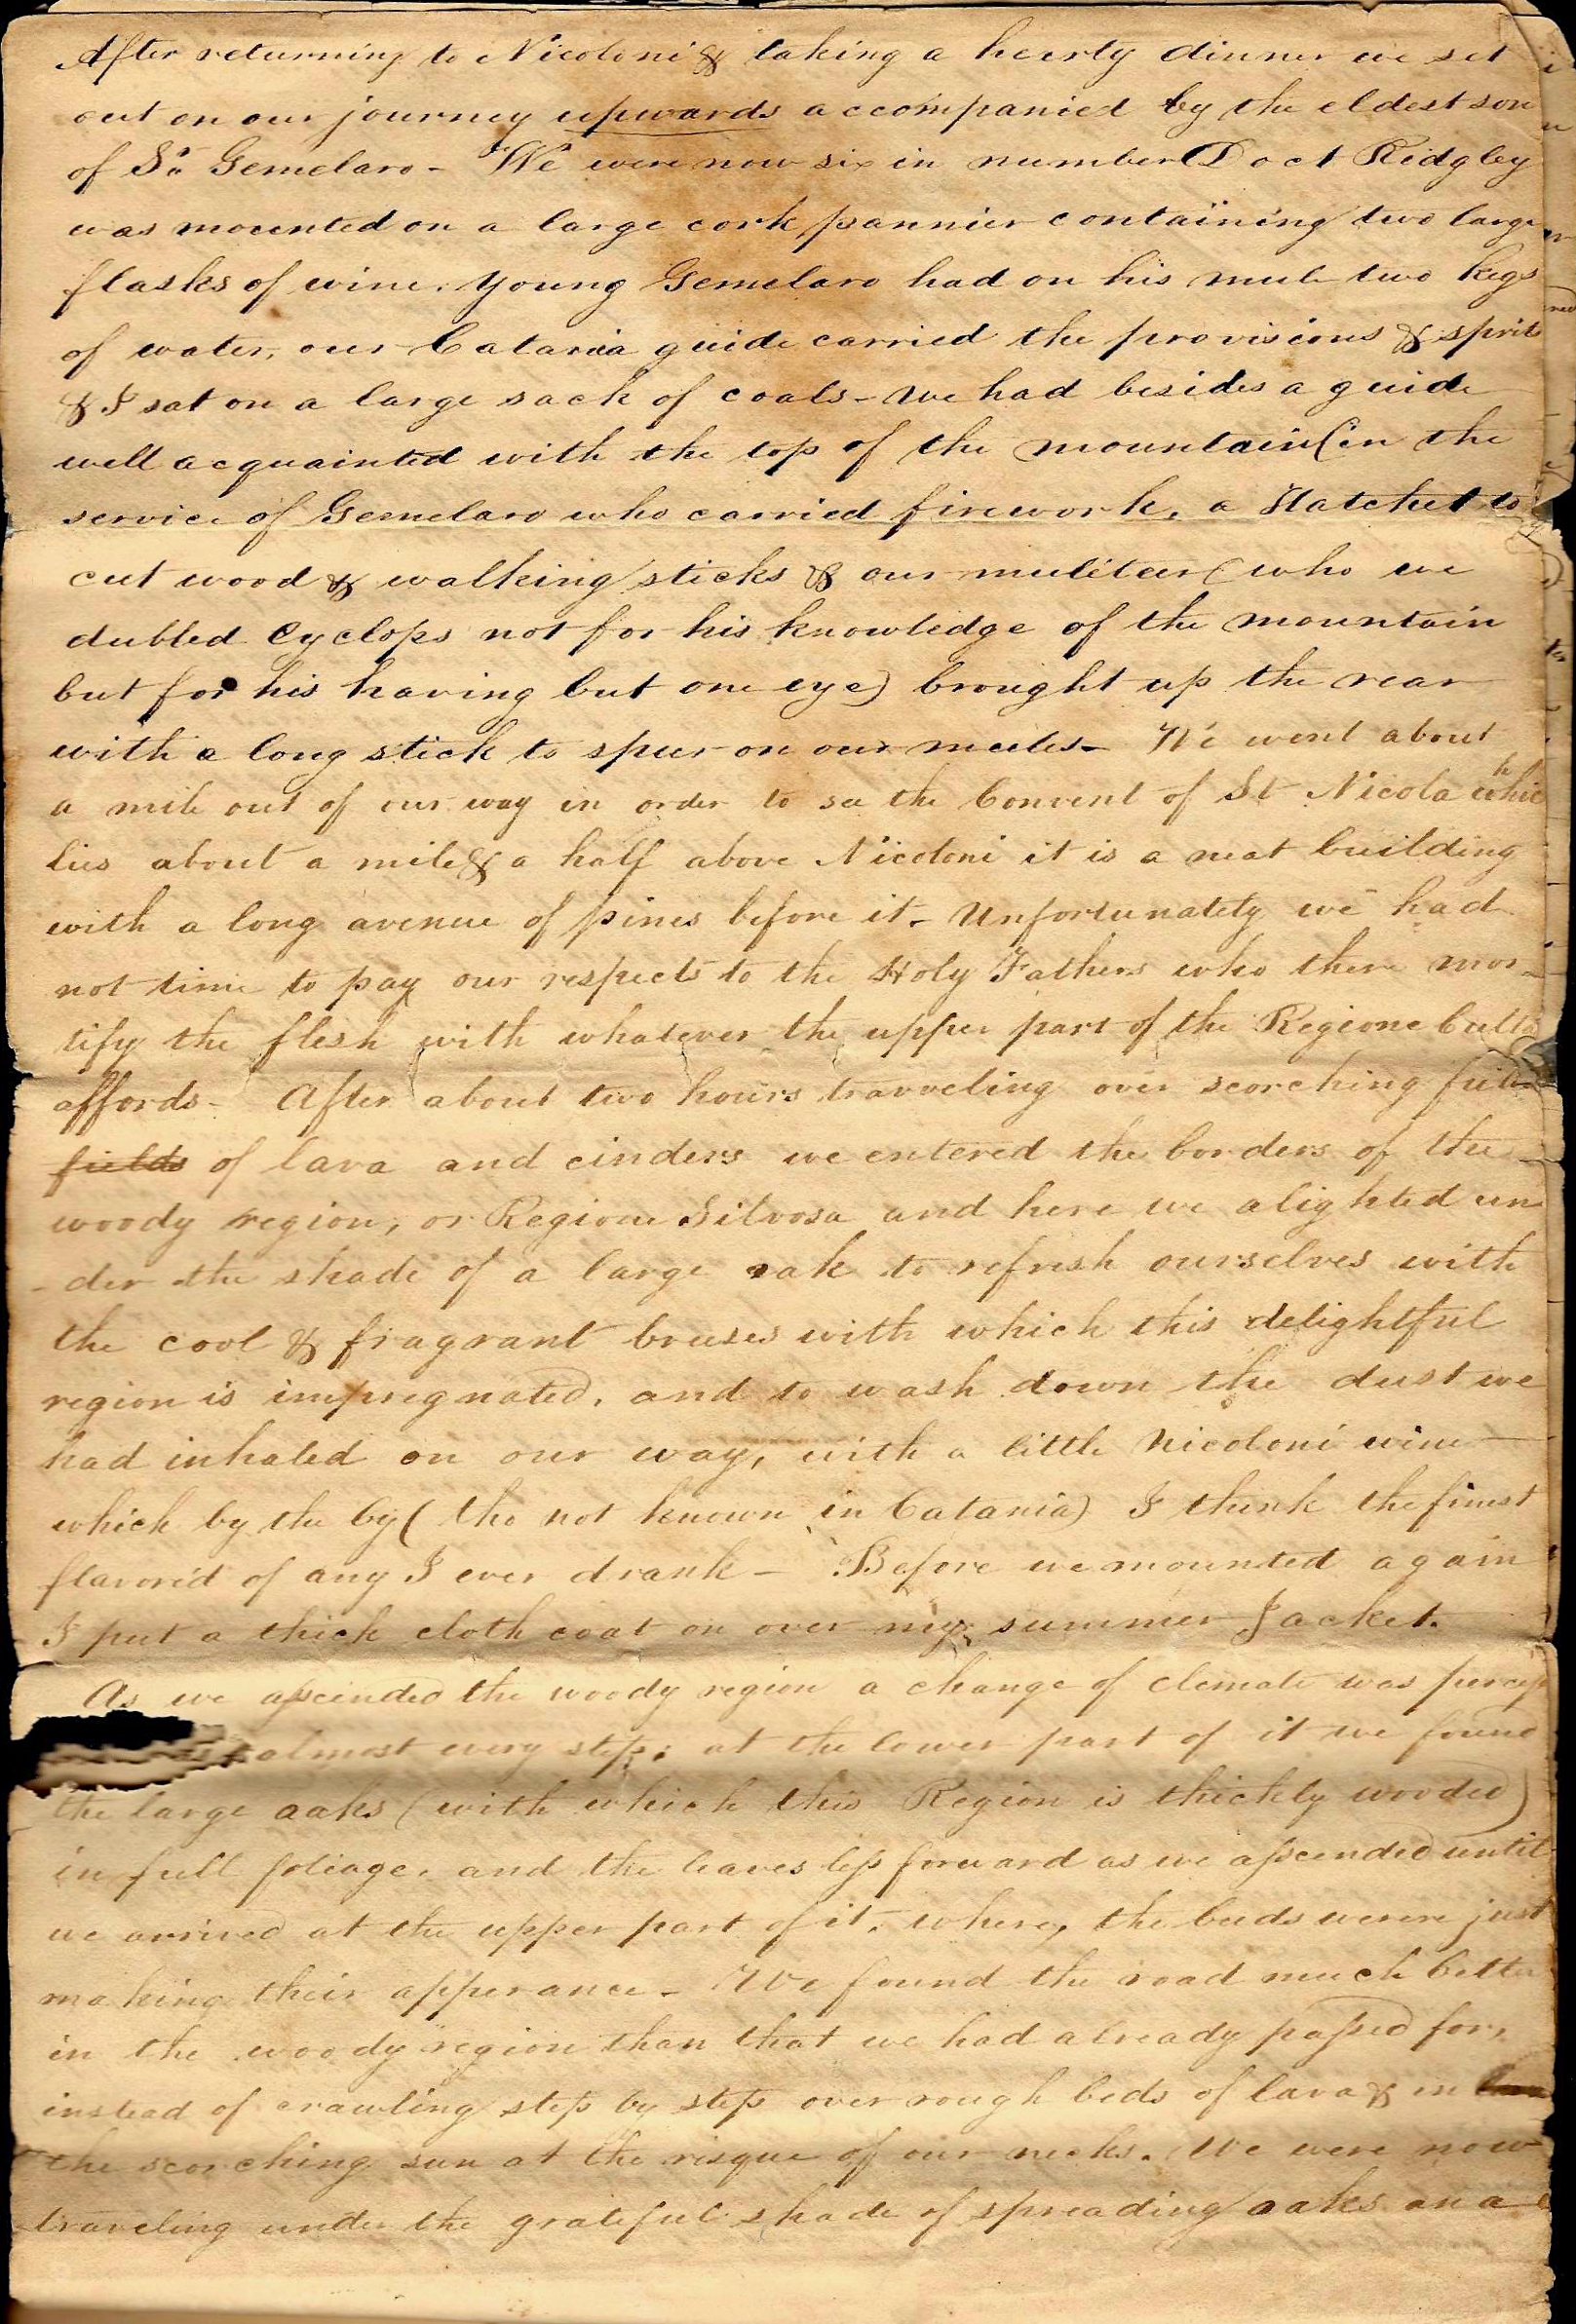 After returning to Nicoloni & taking a hearty dinner we set
out on our journey upwards accompanied by the eldest son
of Sr. Gemelaro - We were now six in number Doct Ridgley
was mounted on a large cork pannier containing two large
flasks of wine. Young Gemelaro had on his mule two kegs
of water, our Catania guide carried the provisions & sprits
& I sat on a large sack of coals - we had besides a guide
well acquainted with the top of the mountain (in the
service of Gemelaro who carried firework, a Hatchet to
cut wood & walking sticks & our muliteer (who we
dubled Cyclops not for his knowledge of the mountain
but for his having but one eye) brought up the rear
with a long stick to spur on our mules - We went about
a mile out of our way in order to see the Convent of St Nicola which
lies about a mile & a half above Nicoloni it is a neat building
with a long avenue of pines before it - Unfortunately we had
not time to pay our respects to the Holy Fathers who there mor-
tify the flesh with whatever the upper part of the Regione Culta
affords - After about two hours travveling over scorching
fields of lava and cinders we entered the borders of the
woody region, or Regione Silvosa and here we alighted un
-der the shade of a large oak to refresh ourselves with
the cool & fragrant breeses with which this delightful
region is impregnated, and to wash down the dust we
had inhaled on our way, with a little Nicoloni wine
which by the by (tho not known in Catania) I think the finest
flavored of any I ever drank - Before we mounted again
I put a thick cloth coat on over my summer Jacket.
As we ascended the woody region a change of climate was percep
almost every step; at the lower part of it we found
the large oaks (with which this Region is thickly wooded)
in full foliage, and the leaves less forward as we ascended until
we arrived at the upper part of it, where, the buds were just
making their apperance - We found the road much better
in the woody region than that we had already passed for,
instead of crawling step by step over rough beds of lava & in
the scorching sun at the risque of our necks. We were now
traveling under the grateful shade of spreading oaks on a